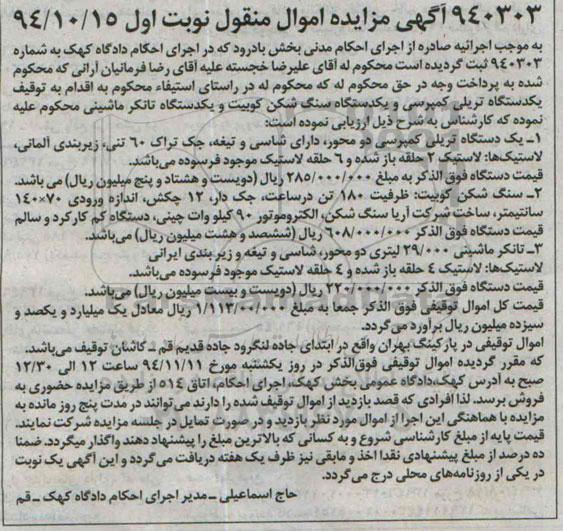 ۹۴۰۳۰۳ آگهی مزایده اموال منقول نوبت اول ۹۴/۱۰/۱۵
به موجب اجرائیه صادره از اجرای احکام مدنی بخش بادرود که در اجرای احکام دادگاه کهک به شماره
۹۴۰۳۰۳ ثبت گردیده است محکوم له آقای علیرضا خجسته علیه آقای رضا فرمانیان آرانی که محکوم
شده به پرداخت وجه در حق محکوم له که محکوم له در راستای استیفاء محکوم به اقدام به توقیف
یکدستگاه تریلی کمپرسی و یکدستگاه سنگ شکن کوبیت و یکدستگاه تانکر ماشینی محکوم علیه
نموده که کارشناس به شرح ذیل ارزیابی نموده است:
۱ـ یک دستگاه تریلی کمپرسی دو محور، دارای شاسی و تیغه، جک تراک ۶۰ تنی، زیربندی آلمانی،
لاستیک‌ها: لاستیک ۲ حلقه باز شده و ۶ حلقه لاستیک موجود فرسوده می‌باشد.
قیمت دستگاه فوق الذکر به مبلغ ۲۸۵/۰۰۰/۰۰۰ ریال (دویست و هشتاد و پنج میلیون ریال) می باشد.
۲ـ سنگ شکن کوبیت: ظرفیت ۱۸۰ تن درساعت، جک دار، ۱۲ چکش، اندازه ورودی ۷۰×۱۴۰
سانتیمتر، ساخت شرکت آریا سنگ شکن، الکتروموتور ۹۰ کیلو وات چینی، دستگاه کم کارکرد و سالم
قیمت دستگاه فوق الذکر ۶۰۸/۰۰۰/۰۰۰ ریال (ششصد و هشت میلیون ریال) می‌باشد.
۳ـ تانکر ماشینی ۲۹/۰۰۰ لیتری دو محور، شاسی و تیغه و زیر بندی ایرانی
لاستیک‌ها: لاستیک ۴ حلقه باز شده و ۴ حلقه لاستیک موجود فرسوده می‌باشد.
قیمت دستگاه فوق الذکر ۲۲۰/۰۰۰/۰۰۰ ریال (دویست و بیست میلیون ریال) می‌باشد.
قیمت کل اموال توقیفی فوق الذکر جمعا به مبلغ ۱/۱۱۳/۰۰۰/۰۰۰ ریال معادل یک میلیارد و یکصد و
سیزده میلیون ریال برآورد می‌گردد.
اموال توقیفی در پارکینگ بهران واقع در ابتدای جاده لنگرود جاده قدیم قم ـ کاشان توقیف می‌باشد.
که مقرر گردیده اموال توقیفی فوق‌الذکر در روز یکشنبه مورخ ۹۴/۱۱/۱۱ ساعت ۱۲ الی ۱۲/۳۰
صبح به آدرس کهک، دادگاه عمومی بخش کهک، اجرای احکام، اتاق ۵۱۴ از طریق مزایده حضوری به
فروش برسد. لذا افرادی که قصد بازدید از اموال توقیف شده را دارند می‌توانند در مدت پنج روز مانده به
مزایده با هماهنگی این اجرا از اموال مورد نظر بازدید و درصورت تمایل در جلسه مزایده شرکت نمایند.
قیمت پایه از مبلغ کارشناسی شروع و به کسانی که بالاترین مبلغ را پیشنهاد دهند واگذار میگردد. ضمنا
ده درصد از مبلغ پیشنهادی نقدا اخذ و مابقی نیز ظرف یک هفته دریافت می‌گردد و این آگهی یک نوبت
در یکی از روزنامه‌های محلی درج می‌گردد.
حاج اسماعیلی ـ مدیر اجرای احکام دادگاه کهک ـ قم